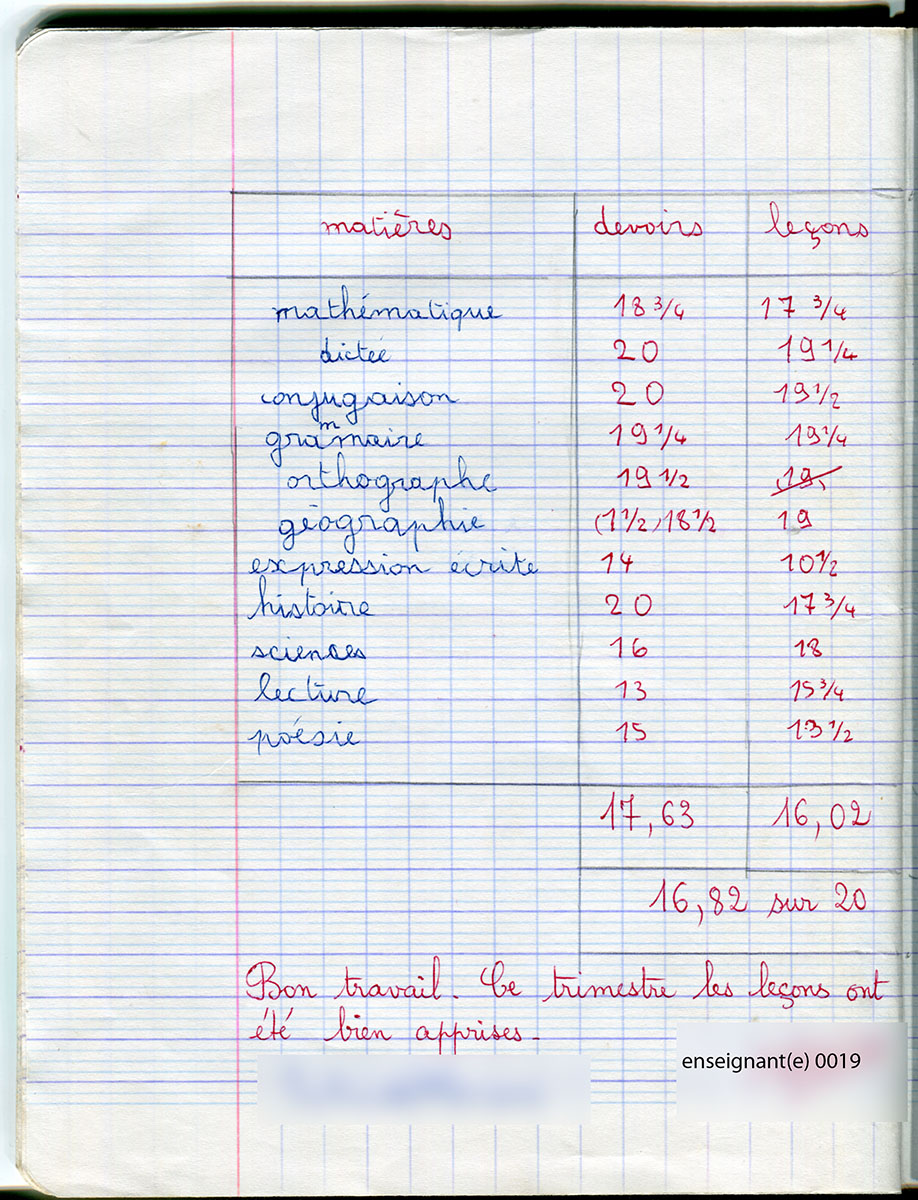 matières devoirs leçons
mathématique 18 3/4 17 3/4
dictée 20 19 1/4
conjugaison 20 19 1/2
grammaire 19 1/4 19 1/4
orthographe 19 1/2 19
géographie (1 1/2, 18 1/2 19
expression écrite 14 10 1/2
histoire 20 17 3/4
sciences 16 18
lecture 13 15 3/4
poésie 15 13 1/2
17,63 16,02
16,82 sur 20
Bon travail. Ce trimestre les leçons ont
été bien apprises.
enseignant(e) 0019